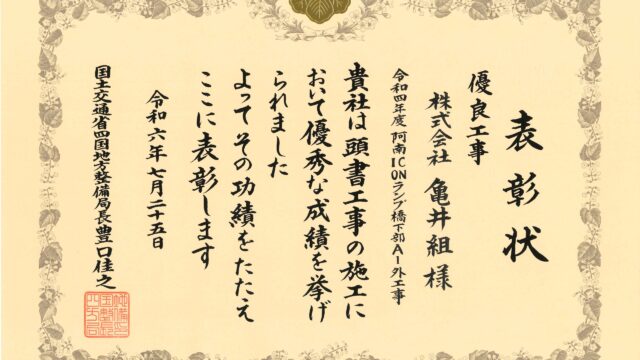 表彰状
優良工事
株式会社 亀井組 様
令和四年度 阿南ICONランプ橋下部A1外工事
貴社は頭書工事の施工に
おいて優秀な成績を挙げ
られました
よってその功績をたたえ
ここに表彰します
令和六年七月二十五日
国土交通省四国地方整備局長 豊口佳之